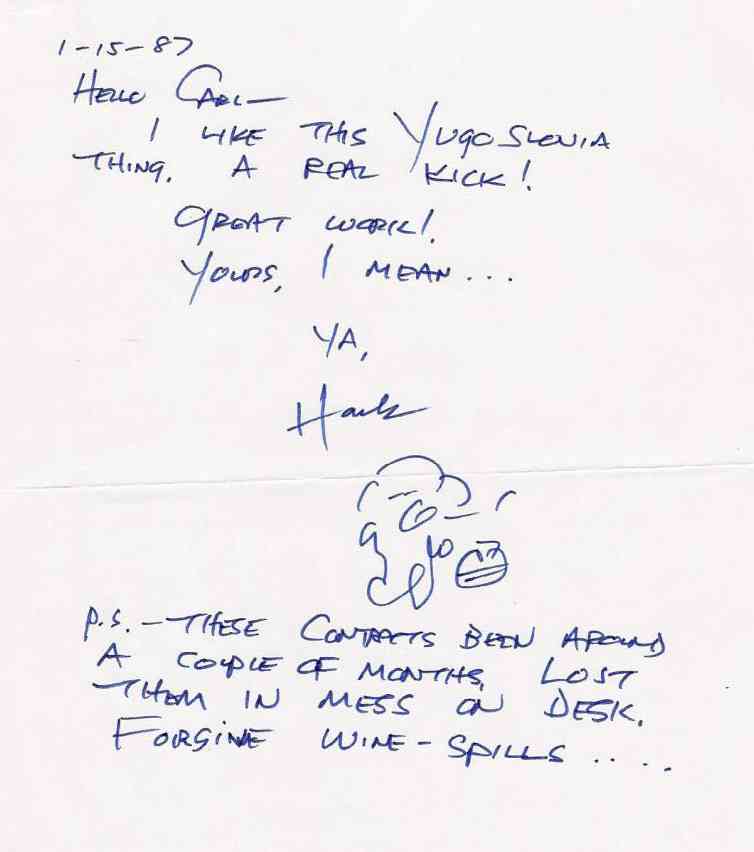 1-15-87
HELLO CARL—
I LIKE THIS YUGOSLOVIA
THING. A REAL KICK!
GREAT WORK!
YOURS, I MEAN...
YA,
Hank
P.S. — THESE CONTRACTS BEEN AROUND
A COUPLE OF MONTHS, LOST
THEM IN MESS ON DESK.
FORGIVE WINE-SPILLS .....